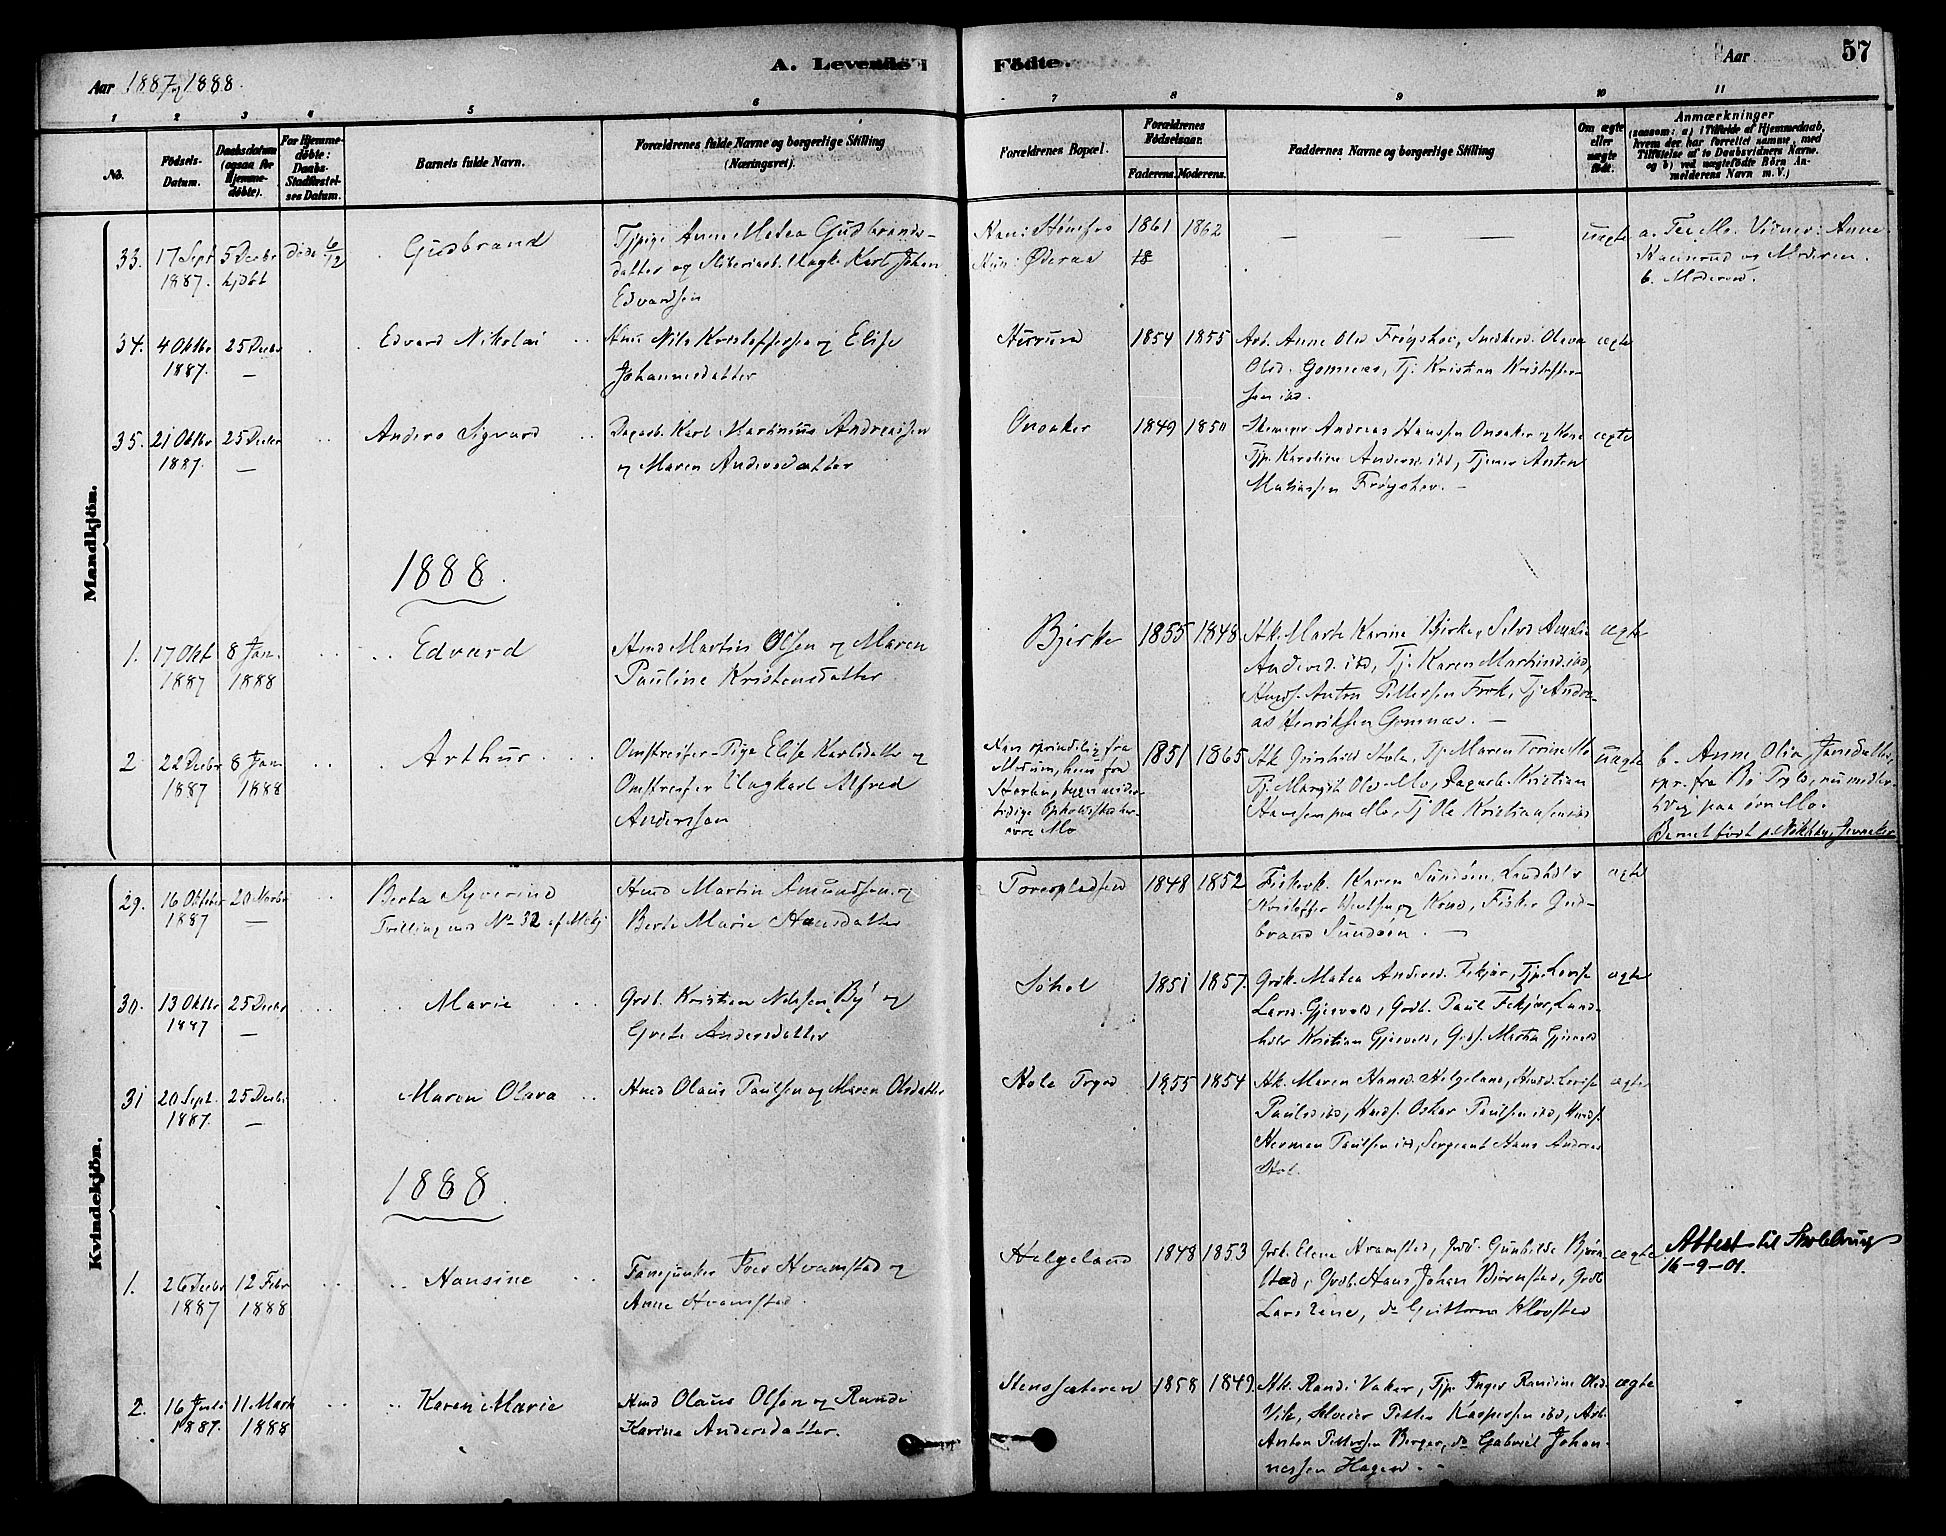 Aar 1887 og 1888.
A. Levende
Födte.
Aar
57
1 2 3 4 5 6 7 8 9 10 11
No.
Födsels-Datum.
Daabsdatum (ogsaa for Hjemmedöbte).
For Hjemmedöbte: Daabs-Stadfæstelses Datum.
Barnets fulde Navn.
Forældrenes fulde Navne og borgerlige Stilling (Næringsvei).
Forældrenes Bopæl.
Forældrenes Födselsaar.
Faderens. Moderens.
Faddernes Navne og borgerlige Stilling
Om ægte eller uægte födt.
Anmærkninger
(saasom: a) i Tilfælde af Hjemmedaab, hvem der har forrettet samme, med Tilföielse af to Daabsvidners Navne. og b) ved uægtefödte Börn Anmelderens Navn m. V.)
Mandkjön.
33. 17 Sept 1887. 5 Decbr hjdbt döde 6/12
Gudbrand
Tjpige Anne Matea Gudbrands-
datter og Sliberiarb. Ungk. Karl Johan
Edvardsen
Han: Hönefos
Hun: Öderaa
1861 1862
uægte
Anne
og Moderen.
b. Moderen.
34. 4 Oktbr 1887. 25 Decbr —
Edvard Nikolai
Hmd Nils Kristoffersen og Elise
Johannesdatter
1854 1855
Arb. Anne Olsd Fröyshov, Snedkerd. Olava
Olsd. Gomnæs, Tj. Kristian Kristoffer-
sen ibd.
ægte
35. 21 Oktbr 1887. 25 Decbr —
Anders Sigvard
Dagarb. Karl Martinius Andreassen
og Maren Andersdatter
Onsaker
1849 1850
Andreas Hanssen Onsaker og Kone
Tjp. Karoline Andersd ibd, Tjener Anton
Mathiassen Fröyshov. —
ægte
1888.
1. 17 Okt 1887 8 Jan. 1888
Edvard
Hmd Martin Olsen og Maren
Pauline Kristensdatter
Bjerke
1855 1848
Hk. Marte Karine Bjerke, Selvd Amalie
Andersd. ibd, Tj. Karen Martinsd. ibd,
Hmds. Anton Pettersen Fork, Tj. Andre-
as Henriksen Gomnæs. —
ægte
2 22 Decbr 1887 8 Jan 1888
Arthur
Omstreifer-Pige Elise Karlsdatter og
Omstreifer Ungkarl Alfred
Anderssen
Han oprindelig fra
Modum, hun fra
Horten, begges midler-
tidige Opholdssted
övre Mo
1851 1865
Hk. Gunhild Hole, Tj. Maren Mo
Tj. Margit Olsd Mo, Dagarb. Kristian
Hanssen paa Mo, Tj Ole Kristiansen ibd
uægte
b. Anne Olia Jansdatter,
opr. fra nu midler-
tidig paa övre Mo.
Barnet födt p. Jevnaker
Kvindekjön.
29. 16 Oktbr 1887 20 Novbr —
Berta Syverine
Tvilling med No 32 af Mdkj
Hmd Martin Amundsen og
Berte Marie Hansdatter
Torespladsen
1848 1852
Fiskerk. Karen Sundöen, Landhdlr
Kristoffer og Kone, Fisker Gud-
brand Sundöen. —
ægte
30. 13 Oktbr 1887 25 Decbr —
Marie
Grdb. Kristian Nilssen By og
Grete Andersdatter
Söhol
1851 1857
Grdk. Matea Andersd. Fekjær, Tjp. Lovise
Larsd. Gjesvold, Grdb. Paul Fekjær, Land-
hdlr Kristian Gjesvold, Grds. Martin Gjesvold
ægte
31 20 Sept. 1887. 25 Decbr —
Maren Olava
Hmd Olaus Paulsen og Maren Olsdatter
Hole Trgd
1855 1854
Hk. Maren Hansd. Helgeland, Hmdd. Lovise
Paulsd ibd, Hmds. Oskar Paulsen ibd, Hmds.
Herman Paulsen ibd, Sergeant Hans Andreas
Hol.
ægte
1888.
1. 26 Decbr 1887 12 Febr 1888
Hansine
Iver Hvamstad og
Anne Hvamstad.
Helgeland
1848 1853
Grdk. Elene Hvamstad, Grdd. Gunhilde Björn-
stad, Grdb. Hans Johan Björnstad, Grdb
Lars Lene, do Guttorm Klövstad
ægte
Attest til Skolebrug
16-9-01.
2. 16 1887. 11 Marts 1888
Karen Marie
Hmd Olaus Olsen og Randi
Karine Andersdatter.
Stenssæteren
1858 1849
Hk. Randi Vaker, Tjp. Inger Randine Olsd.
Vik, Petter Kaspersen ibd, Arb.
Anton Pettersen Berger, do Gabriel Johan-
nessen Hagen. —
ægte